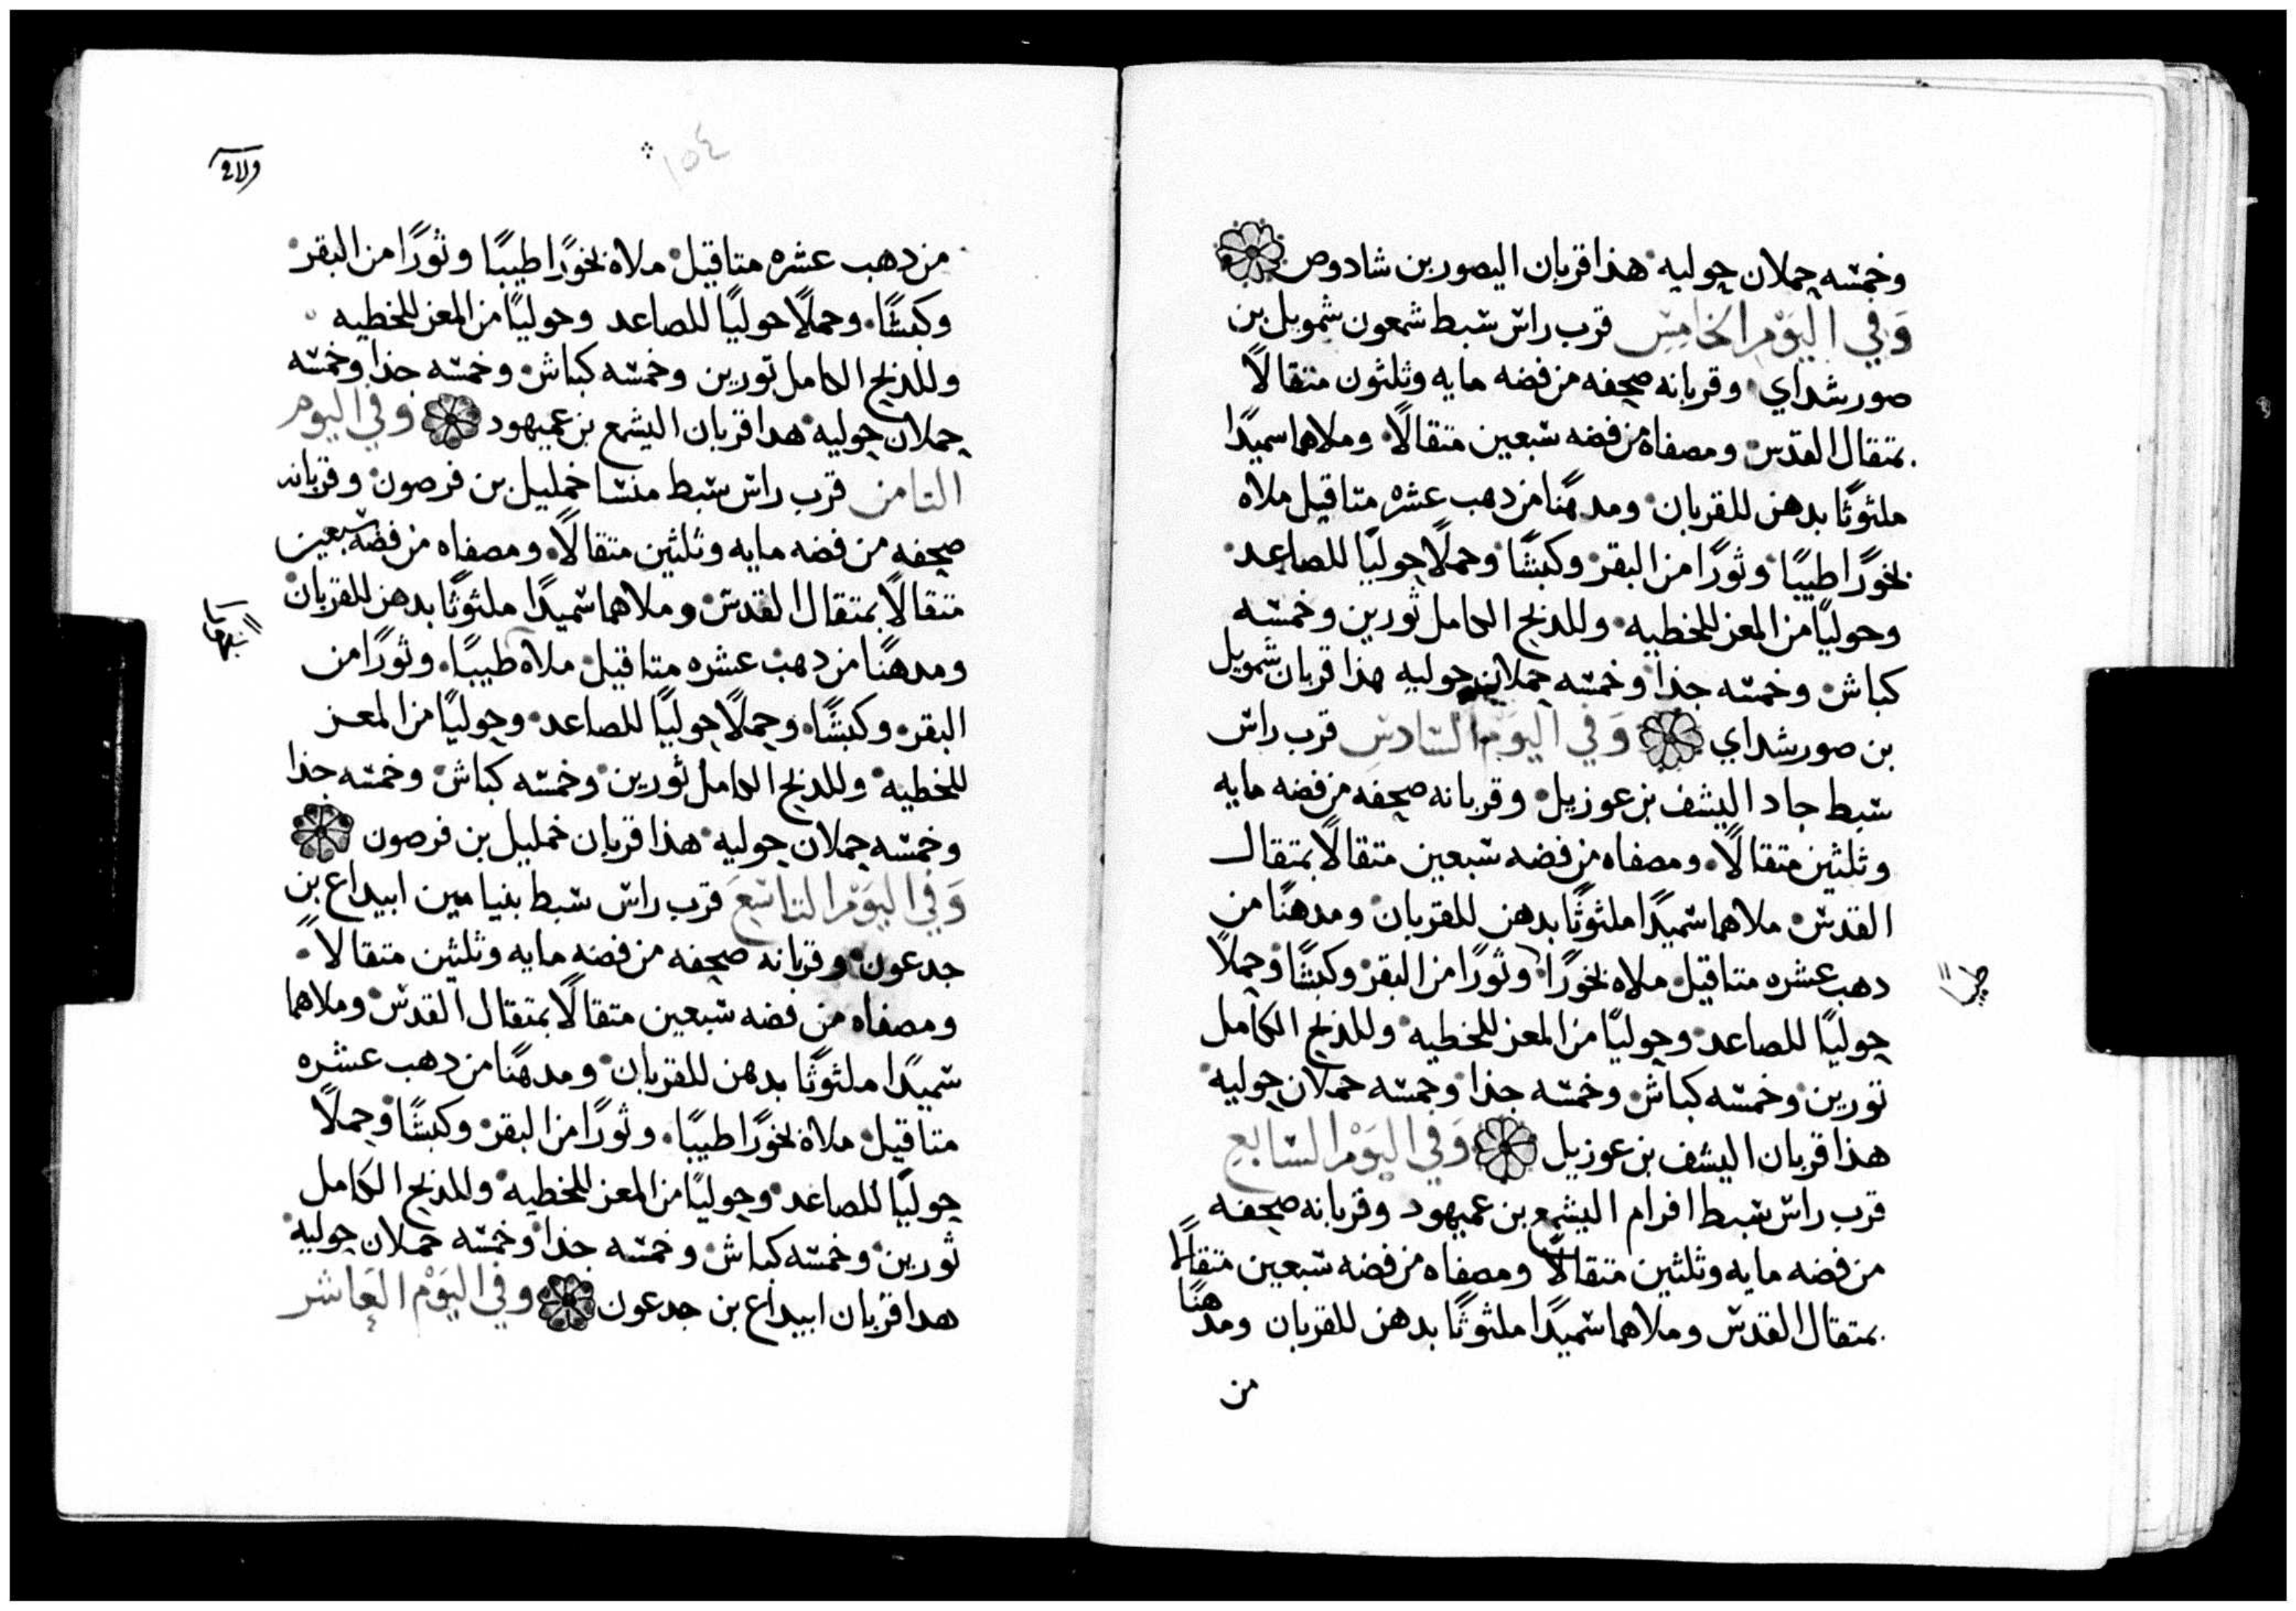 وخمسه حملان حوليه هذا قربان اليصور بن شادوص
وَفي اليَوْمِ الخامِسِ قرب راس سبط شمعون شمويل بن
صورشداي وقربانه صحفه من فضه مايه وثلثون متقالاً
بمتقال القدس ومصفاه من فضه سبعين متقالاً وملاهما سميدًا
ملثوثًا بدهن للقربان ومدهنًا من دهب عشره متاقيل ملاه
بخورًا طيبًا وثورًا من البقر وكبشًا وحملًا حوليًا للصاعد
وحوليًا من المعز للخطيه وللذبح الكامل ثورين وخمسه
كباش وخمسه جذا وخمسه حملان حوليه هذا قربان شمويل
بن صورشداي وَفي اليَوْم السَّادس قرب راس
سبط جاد اليشف بن عوزيل وقربانه صحفه من فضه مايه
وثلثين متقالاً ومصفاه من فضه سبعين متقالاً بمتقال
القدس ملاهما سميدًا ملثوثًا بدهن للقربان ومدهنًا من
دهب عشره متاقيل ملاه بخورًا وثورًا من البقر وكبشًا وحملاً
طيبا
حوليًا للصاعد وحوليًا من المعز للخطيه وللذبح الكامل
تورين وخمسه كباش وخمسه جذا وخمسه حملان حوليه
هذا قربان اليشف بن عوزيل وَفي اليَوْم السَّابع
قرب راس سبط افرام اليشمع بن عميهود وقربانه صحفه
من فضه مايه وثلثين متقالاً ومصفاه من فضه سبعين متقالاً
بمتقال القدس وملاهما سميدًا ملثوثًا بدهن للقربان ومدهنًا
من
١٥٤
من دهب عشره متاقيل ملاه بخورًا طيبًا وثورًا من البقر
وكبشًا وحملًا حوليًا للصاعد وحوليًا من المعز للخطيه
وللذبح الكامل تورين وخمسه كباش وخمسه جذا وخمسه
حملان حوليه هدا قربان اليشمع بن عميهود وَفي اليوم
التامن قرب راس سبط منشا خمليل بن فرصون وقربانه
صحفه من فضه مايه وثلثين متقالاً ومصفاه من فضه سبعين
متقالاً بمتقال القدس وملاهما سميدًا ملثوثًا بدهن للقربان
ومدهنًا من دهب عشره متاقيل ملاه طيبًا وثورًا من
البقر وكبشًا وحملًا حوليًا للصاعد وحوليًا من المعز
للخطيه وللذبح الكامل ثورين وخمسه كباش وخمسه جذا
وخمسه حملان حوليه هذا قربان خمليل بن فرصون
وَفي اليَوْم التاسِعَ قرب راس سبط بنيامين ابيداع بن
جدعون وقربانه صحفه من فضه مايه وثلثين متقالاً
ومصفاه من فضه سبعين متقالاً بمتقال القدس وملاهما
سميدًا ملثوثًا بدهن للقربان ومدهنًا من دهب عشره
متاقيل ملاه بخورًا طيبًا وثورًا من البقر وكبشًا وحملاً
حوليًا للصاعد وحوليًا من المعز للخطيه وللذبح الكامل
ثورين وخمسه كباش وخمسه جذا وخمسه حملان حوليه
هدا قربان ابيداع بن جدعون وفي اليَوْم العَاشر